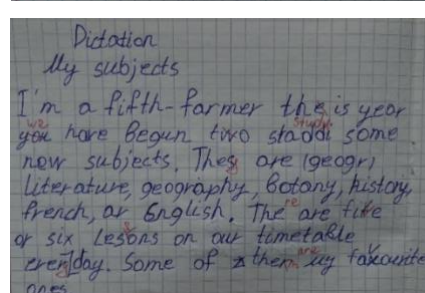 Dictation
My subjects
I'm a fifth-farmer the is year
you have begun two staddi some
now subjects. They are (geogr)
literature, geography, botany, history,
french, ar English. The are five
or six Lessons on our timetable
every day. Some of them my favourite
ones